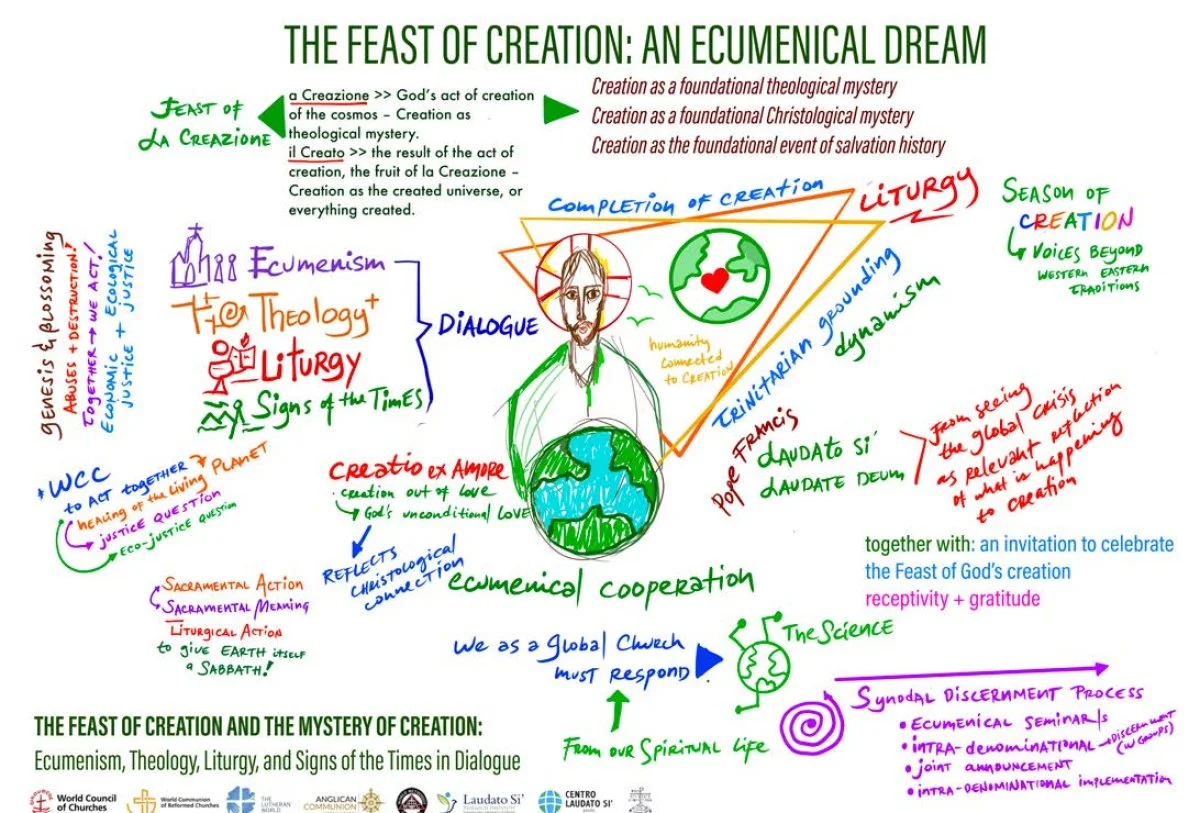 THE FEAST OF CREATION: AN ECUMENICAL DREAM
FEAST OF
LA CREAZIONE
a Creazione >> God's act of creation
of the cosmos – Creation as
theological mystery.
il Creato >> the result of the act of
creation, the fruit of la Creazione –
Creation as the created universe, or
everything created.
Creation as a foundational theological mystery
Creation as a foundational Christological mystery
Creation as the foundational event of salvation history
COMPLETION OF CREATION
LITURGY
SEASON OF
CREATION
VOICES BEYOND
WESTERN EASTERN
TRADITIONS
GENESIS & BLOSSOMING
ABUSES + DESTRUCTION!
TOGETHER → WE ACT!
ECONOMIC + ECOLOGICAL
JUSTICE JUSTICE
Ecumenism
Theology+
LiTURGY
Signs of the TimES
DIALOGUE
humanity
connected
to CREATION
TRINITARIAN grounding
dynamism
Pope FRANCIS
LAUDATO SI'
LAUDATE DEUM
From seeing
the global CRISIS
as relevant reflection
of what is happening
to creation
WCC
to ACT together
PLANET
HEALING of the living
JUSTICE QUESTION
ECO-JUSTICE QUESTION
CREATIO EX AMORE
CREATION OUT OF LOVE
God's unconditional LOVE
REFLECTS
CHRISTOLOGICAL
connection
ecumenical cooperation
together with: an invitation to celebrate
the Feast of God's creation
receptivity + gratitude
SACRAMENTAL ACTION
SACRAMENTAL MEANING
LITURGICAL ACTION
to GIVE EARTH ITSELF
a SABBATH!
We as a Global Church
must respond
The SCIENCE
From our Spiritual Life
SYNODAL DISCERNMENT PROCESS
• ECUMENICAL SEMINAR/S
• INTRA-denominational → DISCERNMENT
(W GROUPS)
• JOINT ANNOUNCEMENT
• INTRA-DENOMINATIONAL IMPLEMENTATION
THE FEAST OF CREATION AND THE MYSTERY OF CREATION:
Ecumenism, Theology, Liturgy, and Signs of the Times in Dialogue
World Council
of Churches
World Communion
of Reformed Churches
THE
LUTHERAN
WORLD
ANGLICAN
COMMUNION
Laudato Si'
CENTRO
LAUDATO SI'